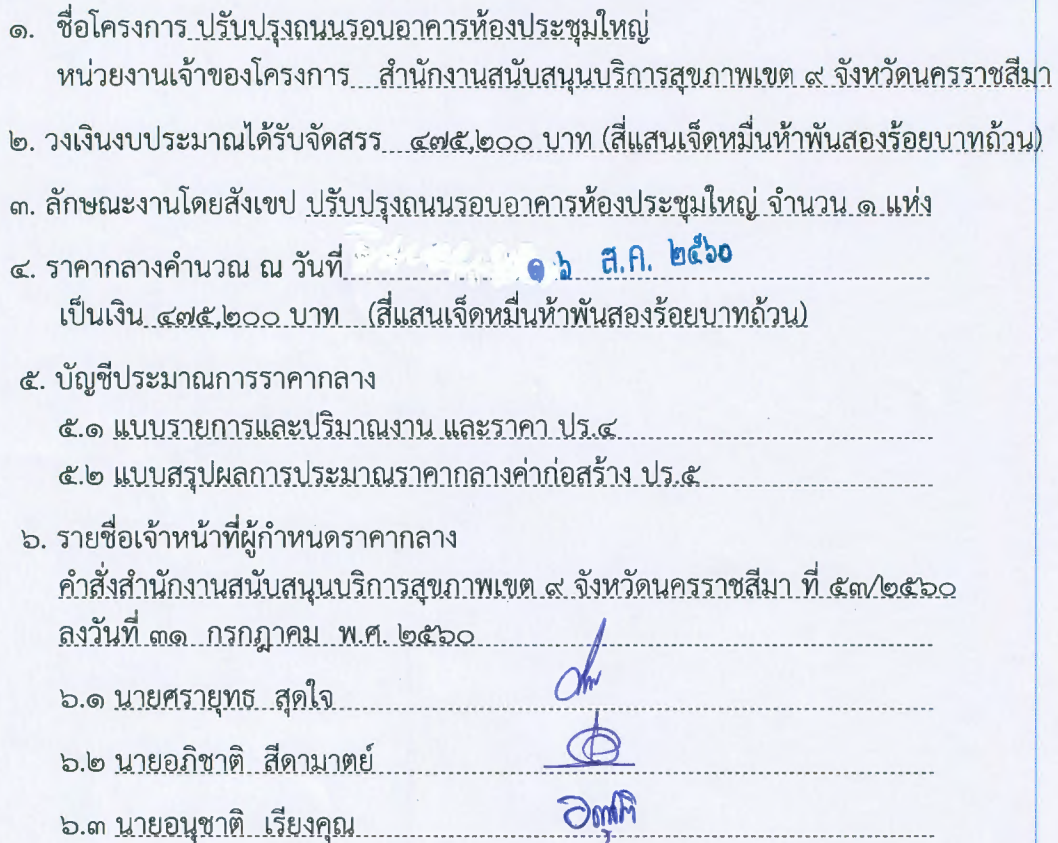 ๑. ชื่อโครงการ ปรับปรุงถนนรอบอาคารห้องประชุมใหญ่
หน่วยงานเจ้าของโครงการ สำนักงานสนับสนุนบริการสุขภาพเขต ๙ จังหวัดนครราชสีมา
๒. วงเงินงบประมาณได้รับจัดสรร ๔๗๕,๒๐๐ บาท (สี่แสนเจ็ดหมื่นห้าพันสองร้อยบาทถ้วน)
๓. ลักษณะงานโดยสังเขป ปรับปรุงถนนรอบอาคารห้องประชุมใหญ่ จำนวน ๑ แห่ง
๔. ราคากลางคำนวณ ณ วันที่ ๑๖ ส.ค. ๒๕๖๐
เป็นเงิน ๔๗๕,๒๐๐ บาท (สี่แสนเจ็ดหมื่นห้าพันสองร้อยบาทถ้วน)
๕. บัญชีประมาณการราคากลาง
๕.๑ แบบรายการและปริมาณงาน และราคา ปร.๔
๕.๒ แบบสรุปผลการประมาณราคากลางค่าก่อสร้าง ปร.๕
๖. รายชื่อเจ้าหน้าที่ผู้กำหนดราคากลาง
คำสั่งสำนักงานสนับสนุนบริการสุขภาพเขต ๙ จังหวัดนครราชสีมา ที่ ๕๓/๒๕๖๐
ลงวันที่ ๓๑ กรกฎาคม พ.ศ. ๒๕๖๐
๖.๑ นายศรายุทธ สุดใจ
๖.๒ นายอภิชาติ สีดามาตย์
๖.๓ นายอนุชาติ เรียงคุณ